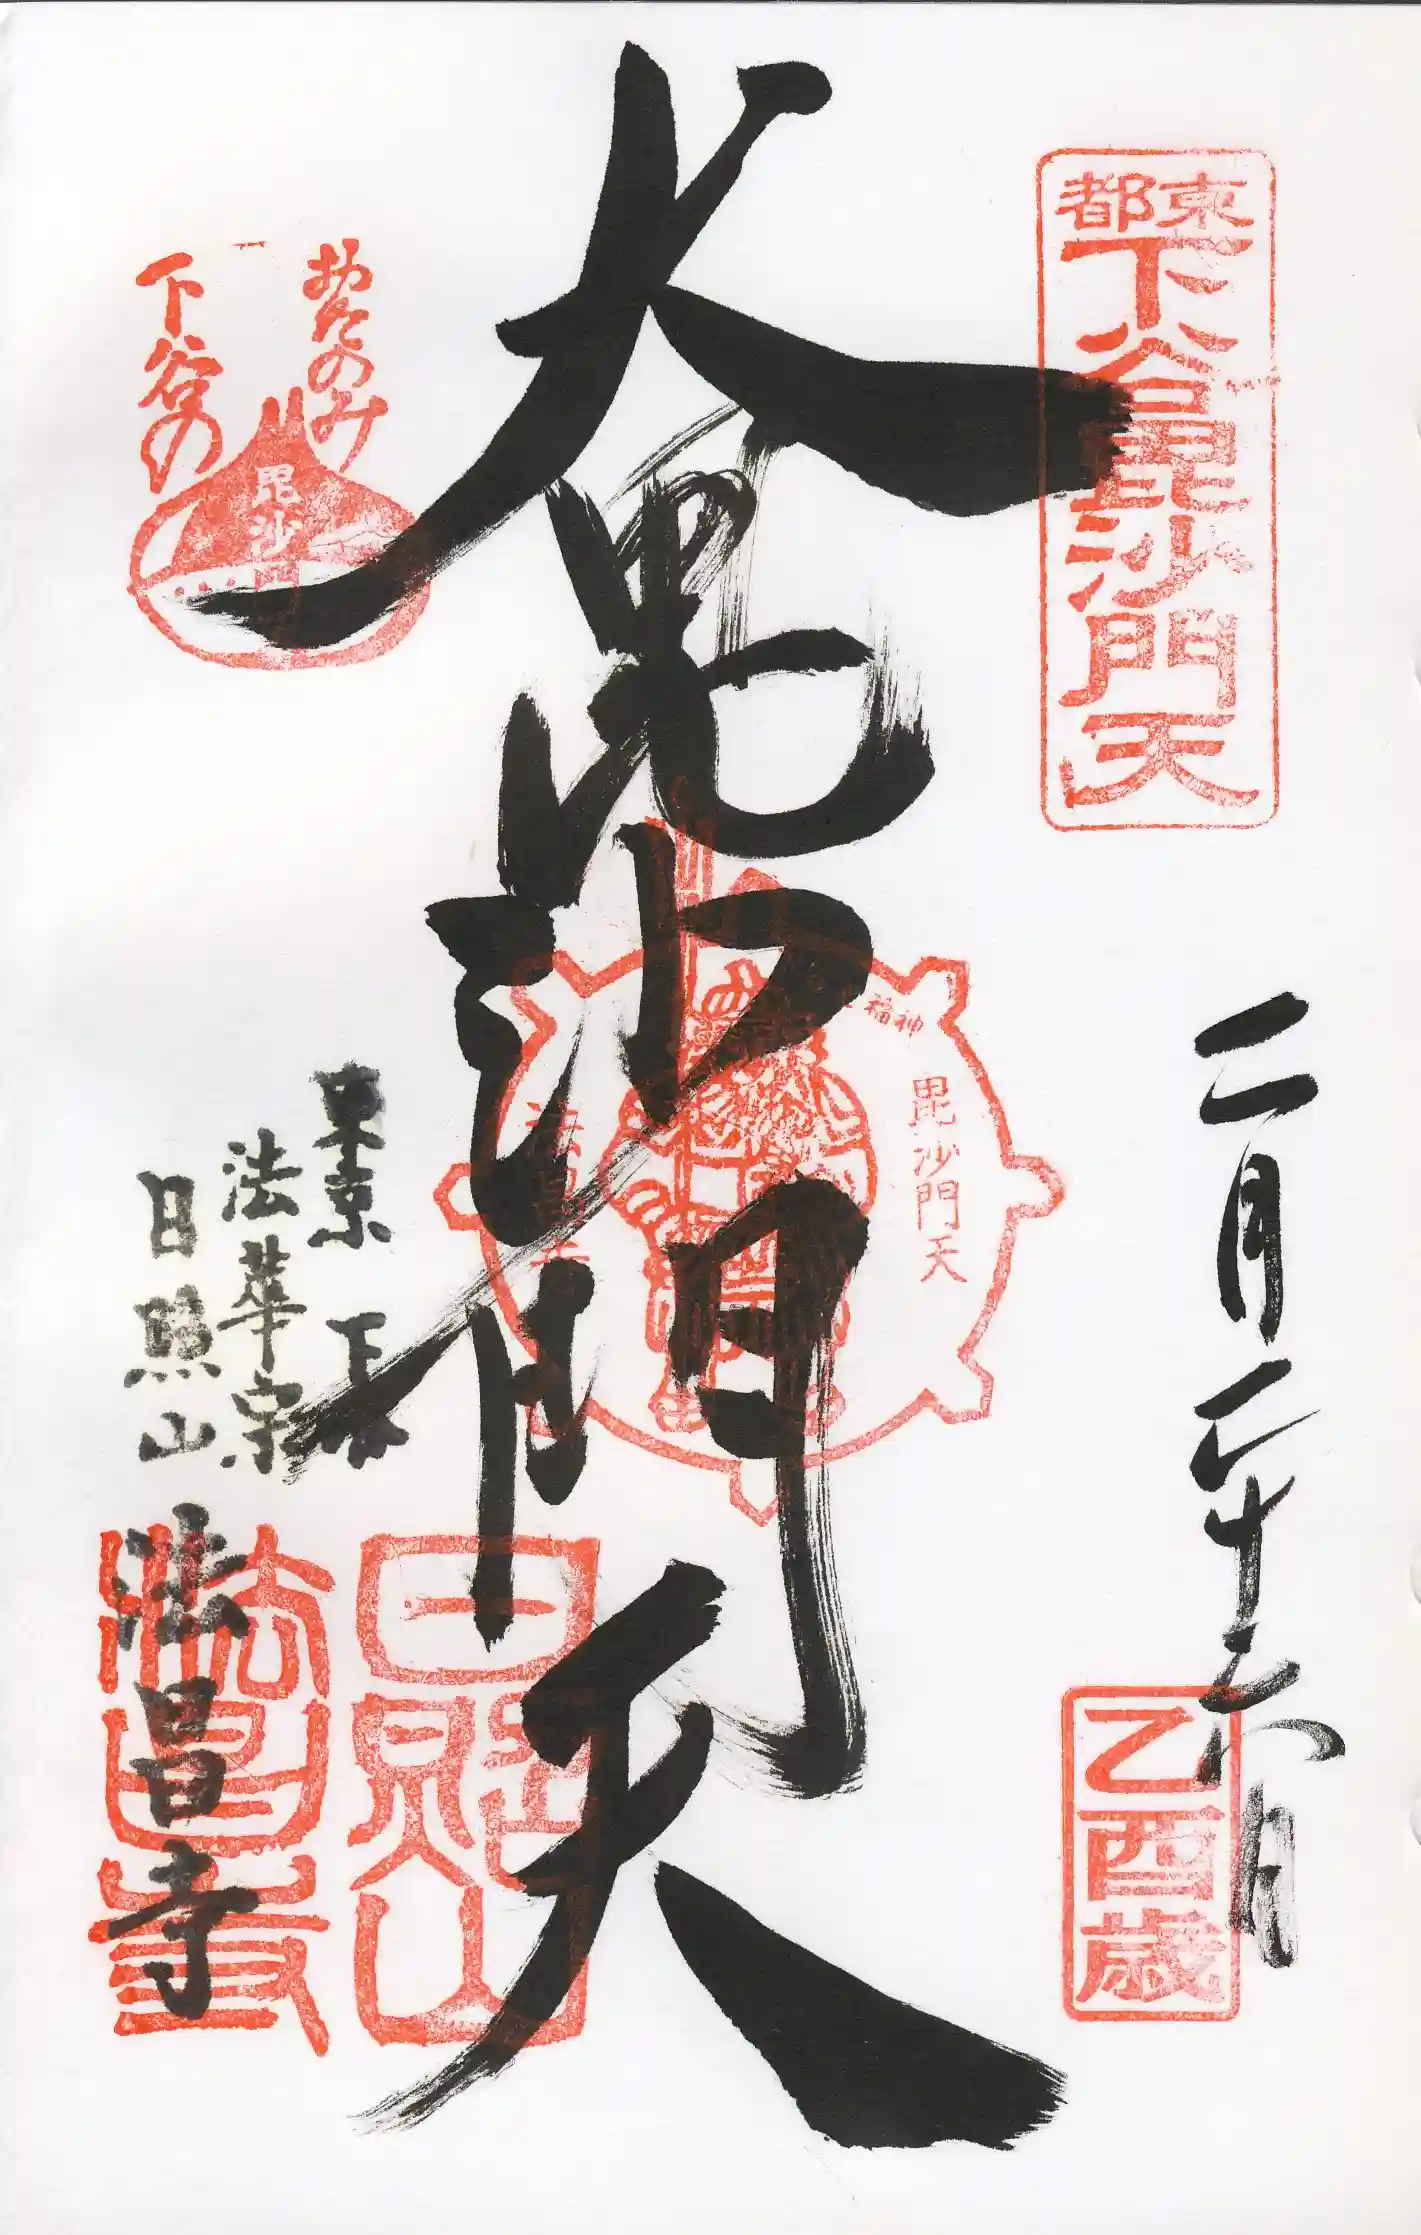 東都
下谷毘沙門天
二月二十
乙酉歳
大毘沙門天
福神
毘沙門天
法昌寺
日照山
おたのみ
下谷の
毘沙門
東京 下谷
法華宗
日照山
法昌寺
法昌寺